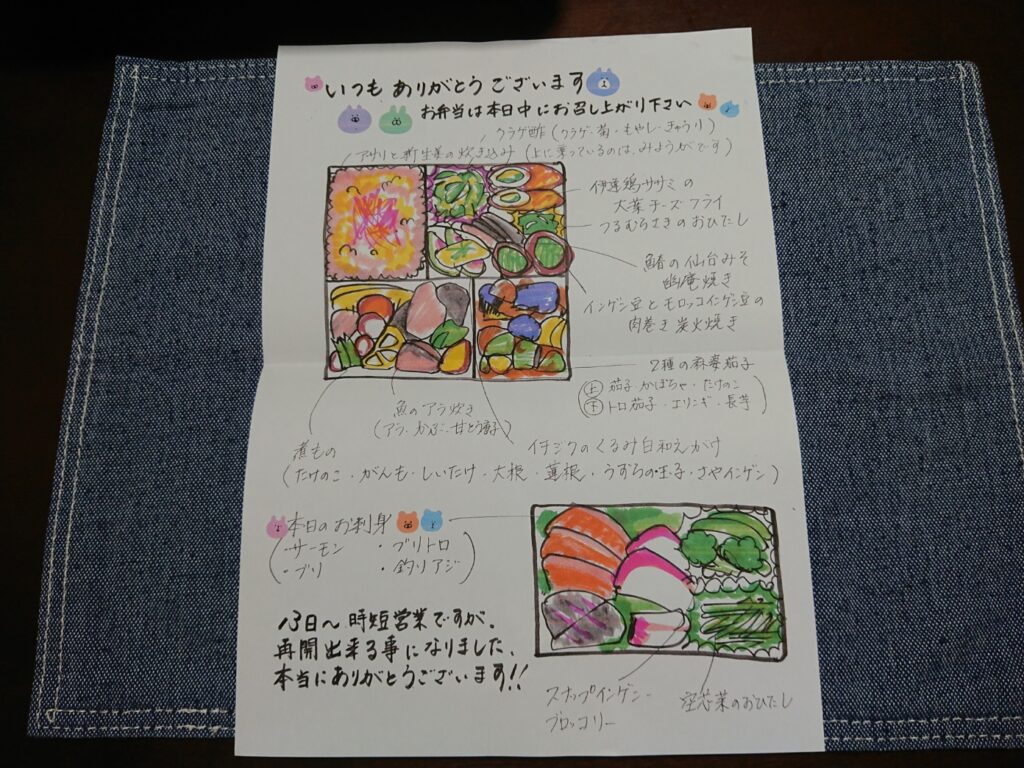 いつも ありがとうございます
お弁当は本日中にお召し上がり下さい
クラゲ酢 (クラゲ・菊・もやし・きゅうり)
アサリと新生姜の炊き込み (上に乗っているのは、みょうがです)
伊達鶏ササミの
大葉チーズフライ
つるむらさきのおひたし
鰆の仙台みそ
幽庵焼き
インゲン豆とモロッコインゲン豆の
肉巻き 炭火焼き
2種の麻婆茄子
(上) 茄子・かぼちゃ・たけのこ
(下) トロ茄子・エリンギ・長芋
魚のアラ炊き
(アラ・かぶ・甘とう
煮もの
イチジクのくるみ白和えがけ
(たけのこ・がんも・しいたけ・大根・蓮根・うずらの玉子・さやインゲン)
本日のお刺身
・サーモン ・ブリトロ
・ブリ ・釣りアジ
13日～時短営業ですが、
再開出来る事になりました、
本当にありがとうございます!!
スナップインゲン
ブロッコリー
空芯菜のおひたし